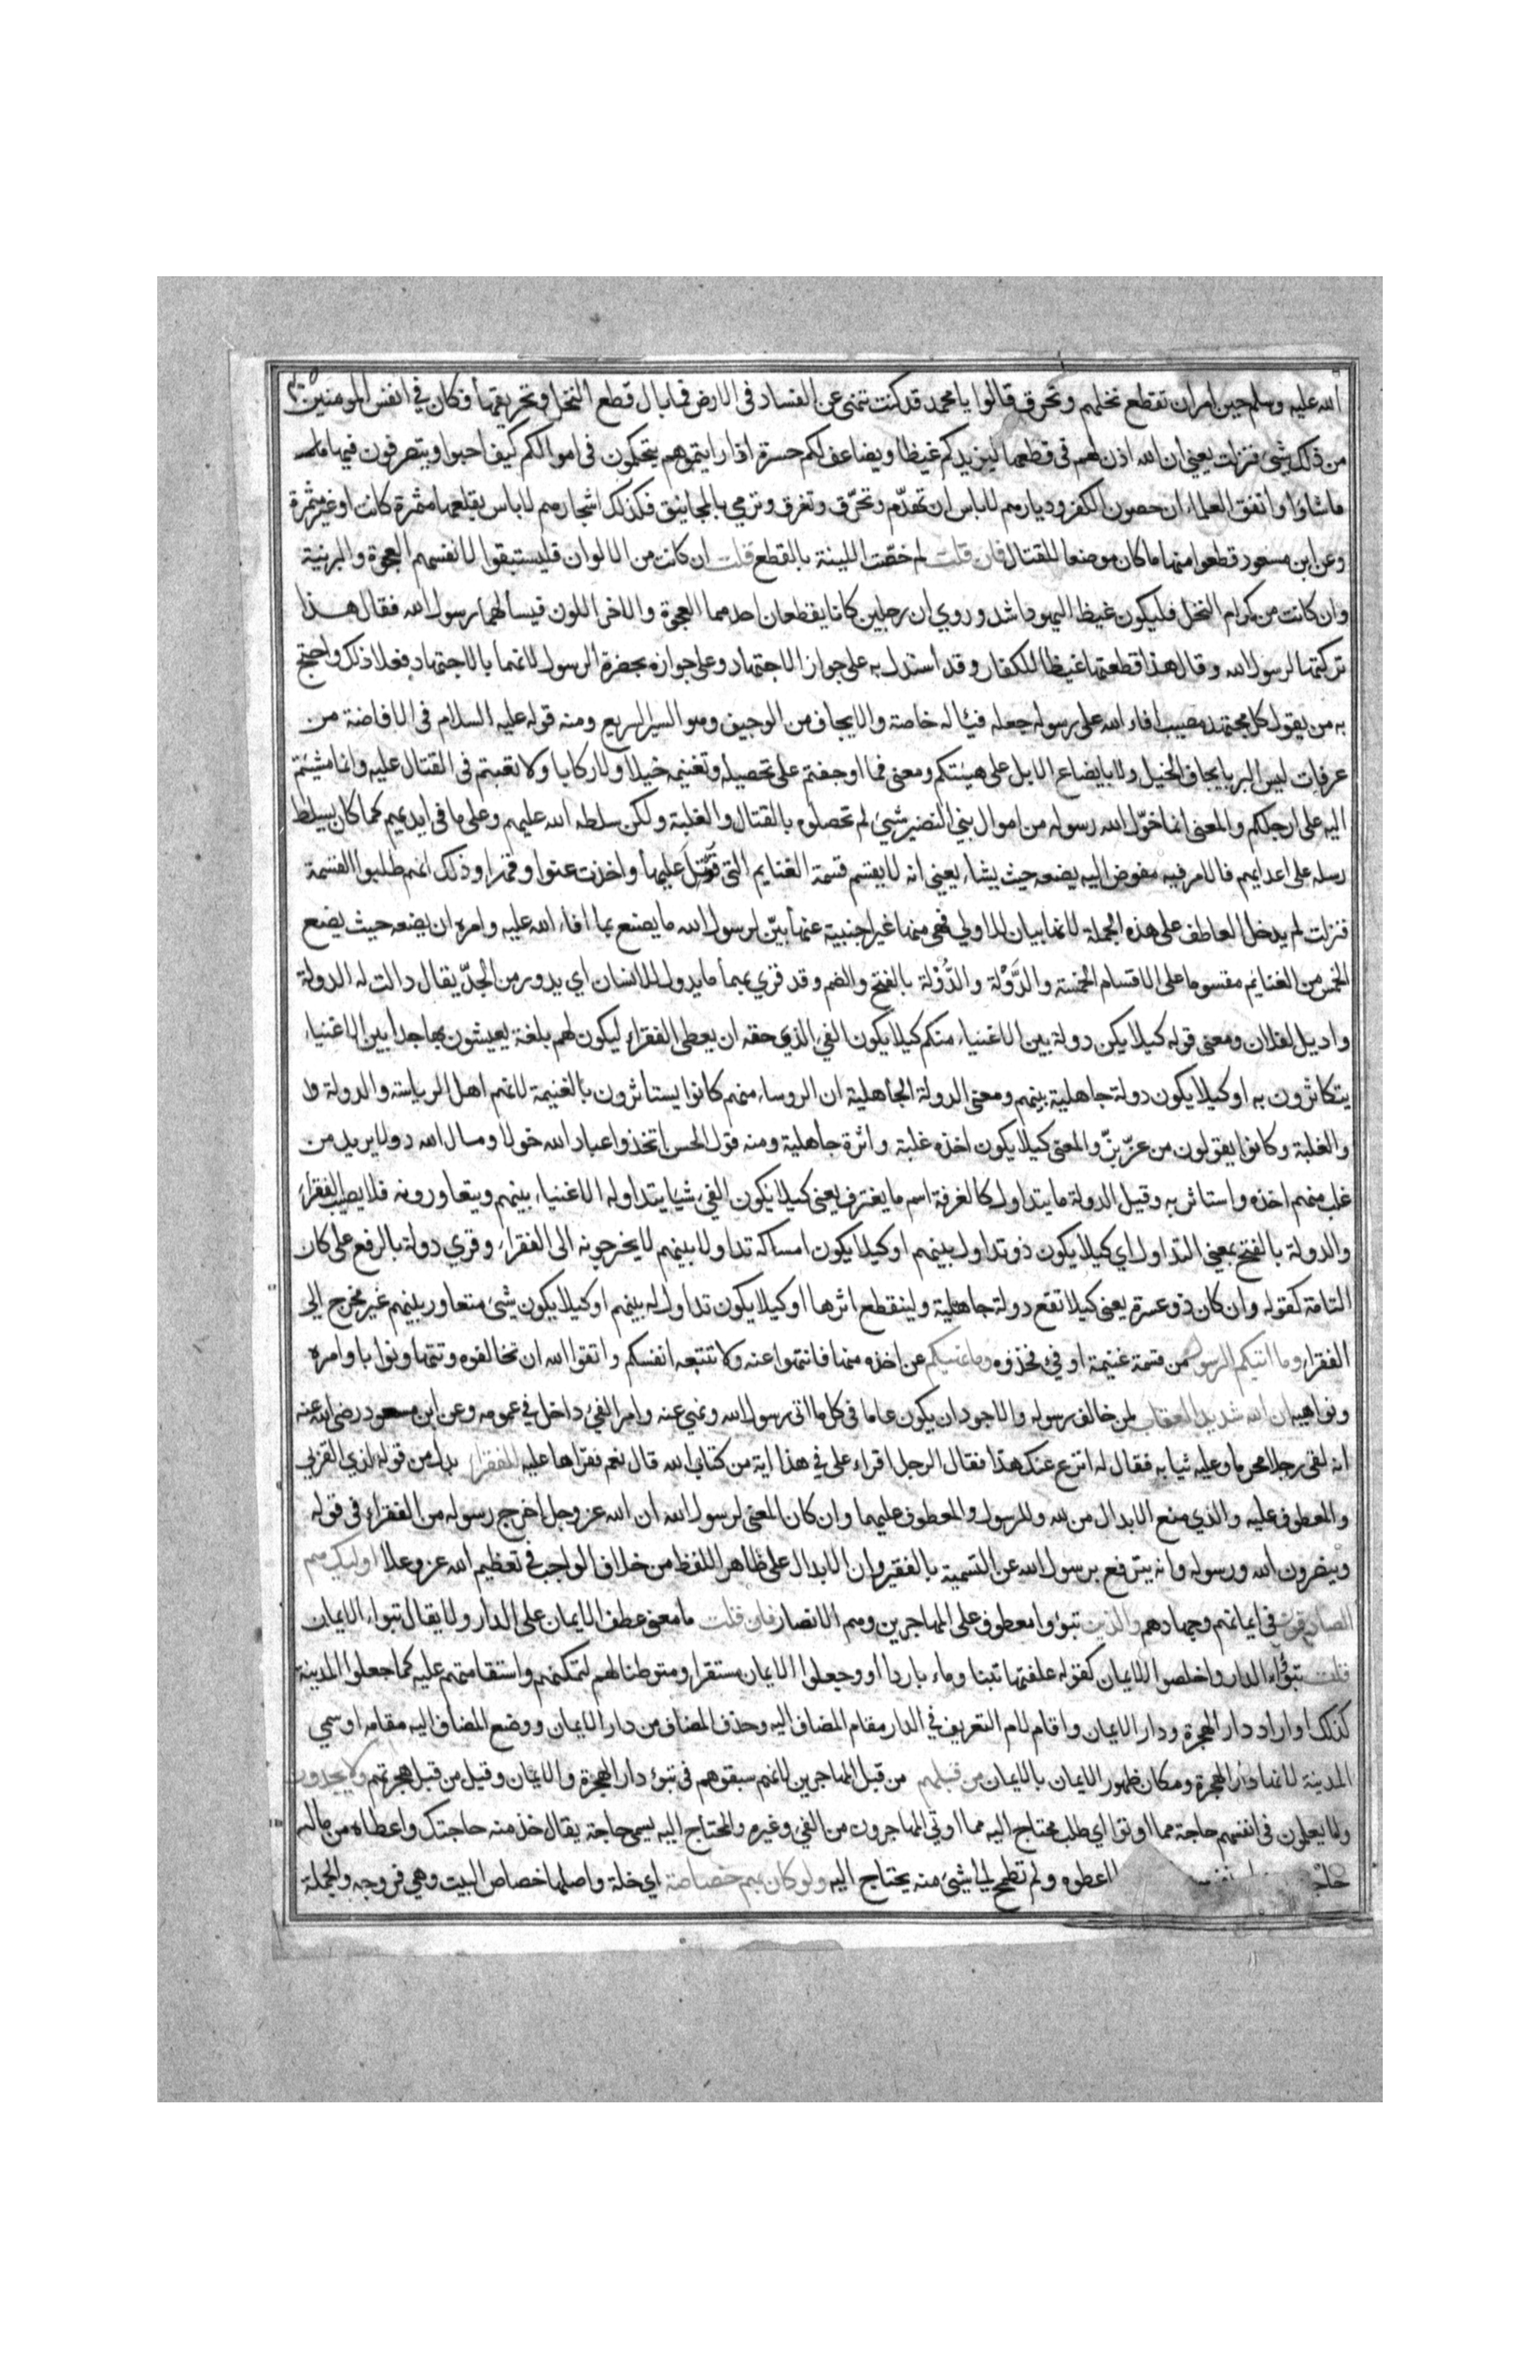 الله عليه وسلم حين امر ان تقطع نخلهم وتحرق قالوا يا محمد قد كنت تنهى عن الفساد في الارض فما بال قطع النخل وتحريقها فكان في انفس المومنين
من ذلك شيء فنزلت يعني ان الله اذن لهم في قطعها ليزيدكم غيظا ويضاعف لكم حسرة اذا رايتموهم يتحكمون في اموالكم كيف احبوا ويتصرفون فيها
ما شاؤا واتفق العلماء ان حصون الكفر وديارهم لا باس ان تهدّم وتحرّق وتغرق وترمي بالمجانيق فكذلك اشجارهم لا باس بقلعها مثمرة كانت او غير مثمرة
وعن ابن مسعود قطعوا منها ما كان موضعا للقتال فان قلت لم خصّت اللينة بالقطع قلت ان كانت من الالوان فليستبقوا لانفسهم العجوة والبرنية
وان كانت من كرام النخل فليكون غيظ اليهود اشد وروي ان رجلين كانا يقطعان احدهما العجوة والاخر اللون فيسألهما رسول الله فقال هذا
تركتها لرسول الله وقال هذا قطعتها غيظا للكفار وقد استدل به على جواز الاجتهاد وعلى جوازه بحضرة الرسول لانهما بالاجتهاد فعلا ذلك واحتج
به من يقول كل مجتهد مصيب افاء الله على رسوله جعله فيئا له خاصة والايجاف من الوجيف وهو السير السريع ومنه قوله عليه السلام في الافاضة من
عرفات ليس البر بايجاف الخيل ولا بايضاع الابل على هينتكم ومعنى فما اوجفتم على تحصيله وتغنيمه خيلا ولا ركابا ولا تعبتم في القتال عليه وانما مشيتم
اليه على ارجلكم والمعنى انما خوّل الله رسوله من اموال بني النضير شيئ لم تحصلوه بالقتال والغلبة ولكن سلطه الله عليهم وعلى ما في ايديهم كما كان يسلط
رسله على اعدايهم فالامر فيه مفوض اليه يضعه حيث يشاء يعني انه لا يقسم قسمة الغنايم التي قوتل عليها واخذت عنوا وقهرا وذلك انهم طلبوا القسمة
فنزلت لم يدخل العاطف على هذه الجملة لانها بيان للاولي فهي منها غير اجنبية عنها بيّن لرسول الله ما يصنع بما افاء الله عليه وامره ان يضعه حيث يضع
الخمس من الغنايم مقسوما على الاقسام الخمسة والدَّوْلة والدُّوْلة بالفتح والضم وقد قري بهما ما يدول للانسان اي يدور من الجدّ يقال دالت له الدولة
واديل لفلان ومعنى قوله كيلا يكن دولة بين الاغنياء منكم كيلا يكون الفي الذي حقه ان يعطى الفقراء ليكون لهم بلغة يعيشون بها جدا بين الاغنياء
يتكاثرون به او كيلا يكون دولة جاهلية بينهم ومعنى الدولة الجاهلية ان الروساء منهم كانوا يستاثرون بالغنيمة لانهم اهل الرياسة والدولة
والغلبة وكانوا يقولون من عزّ بزّ والمعنى كيلا يكون اخذه غلبة واثرة جاهلية ومنه قول الحسن اتخذوا عباد الله خولا ومال الله دولا يريد من
غلب منهم اخذه واستاثر به وقيل الدولة ما يتداول كالغرفة اسم ما يغترف يعنى كيلا يكون الفيء شيا يتداوله الاغنياء بينهم ويتعاورونه فلا يصيب الفقراء
والدولة بالفتح بمعنى التداول اي كيلا يكون ذو تداول بينهم او كيلا يكون امساكه تداولا بينهم لا يخرجونه الى الفقراء وقري دولة بالرفع على كان
التامة كقوله وان كان ذو عسرة يعنى كيلا تقع دولة جاهلية ولينقطع اثرها او كيلا يكون تداول له بينهم او كيلا يكون شيئ متعاور بينهم غير مخرج الى
الفقراء وما اتيكم الرسول من قسمة غنيمة او فيء فخذوه وما نهيكم عن اخذه منها فانتهوا عنه ولا تتبعه انفسكم واتقوا الله ان تخالفوه وتتهاونوا باوامره
ونواهيه ان الله شديد العقاب لمن خالف رسوله والاجود ان يكون عاما في كل ما اتى رسول الله ونهي عنه وامر الفيء داخل في عمومه وعن ابن مسعود رضي الله عنه
انه لقي رجلا محرما وعليه ثيابه فقال له انزع عنك هذا فقال الرجل اقراء على في هذا اية من كتاب الله قال نعم فقراها عليه للفقراء بدل من قوله لذي القربى
والمعطوف عليه والذي منع الابدال من لله وللرسول والمعطوف عليهما وان كان المعنى لرسول الله ان الله عز وجل اخرج رسوله من الفقراء في قوله
وينصرون الله ورسوله وانه يترفع برسول الله عن التسمية بالفقير وان الابدال على ظاهر اللفظ من خلاف الواجب في تعظيم الله عز وعلا اوليك هم
الصادقون في ايمانهم وجهادهم والذين تبوؤا معطوف على المهاجرين وهم الانصار فان قلت ما معنى عطف الايمان على الدار ولا يقال تبواء الايمان
قلت تبوؤا الدار واخلصوا الايمان كقوله علفتها تبنا وماء باردا او وجعلوا الايمان مستقرا ومتوطنا لهم لتمكنهم واستقامتهم عليه كما جعلوا المدينة
كذلك او اراد دار الهجرة ودار الايمان واقام لام التعريف في الدار مقام المضاف اليه وحذف المضاف من دار الايمان ووضع المضاف اليه مقامه او سمي
المدينة لانها دار الهجرة ومكان ظهور الايمان بالايمان من قبلهم من قبل المهاجرين لانهم سبقوهم في تبوء دار الهجرة والايمان وقيل من قبل هجرتهم ولا يجدون
ولا يعلمون في انفسهم حاجة مما اوتوا اي طلب محتاج اليه مما اوتي المهاجرون من الفيء وغيره والمحتاج اليه يسمى حاجة يقال خذ منه حاجتك واعطاه من ماله
اعطوه ولم تطمح الى شيئ منه يحتاج اليه ولو كان بهم خصاصة اي خلة واصلها خصاص البيت وهي فروجه والجملة